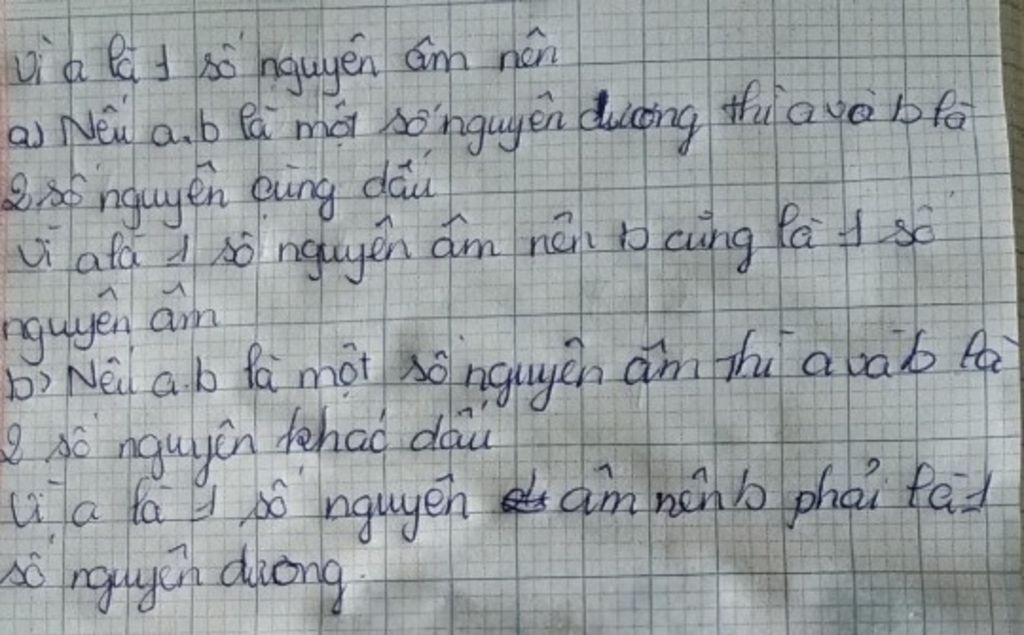 Vì a là 1 số nguyên âm nên
a) Nếu a.b là một số nguyên dương thì a và b là
2 số nguyên cùng dấu
Vì a là 1 số nguyên âm nên b cũng là 1 số
nguyên âm
b) Nếu a.b là một số nguyên âm thì a và b là
2 số nguyên khác dấu
Vì a là 1 số nguyên âm nên b phải là 1
số nguyên dương.